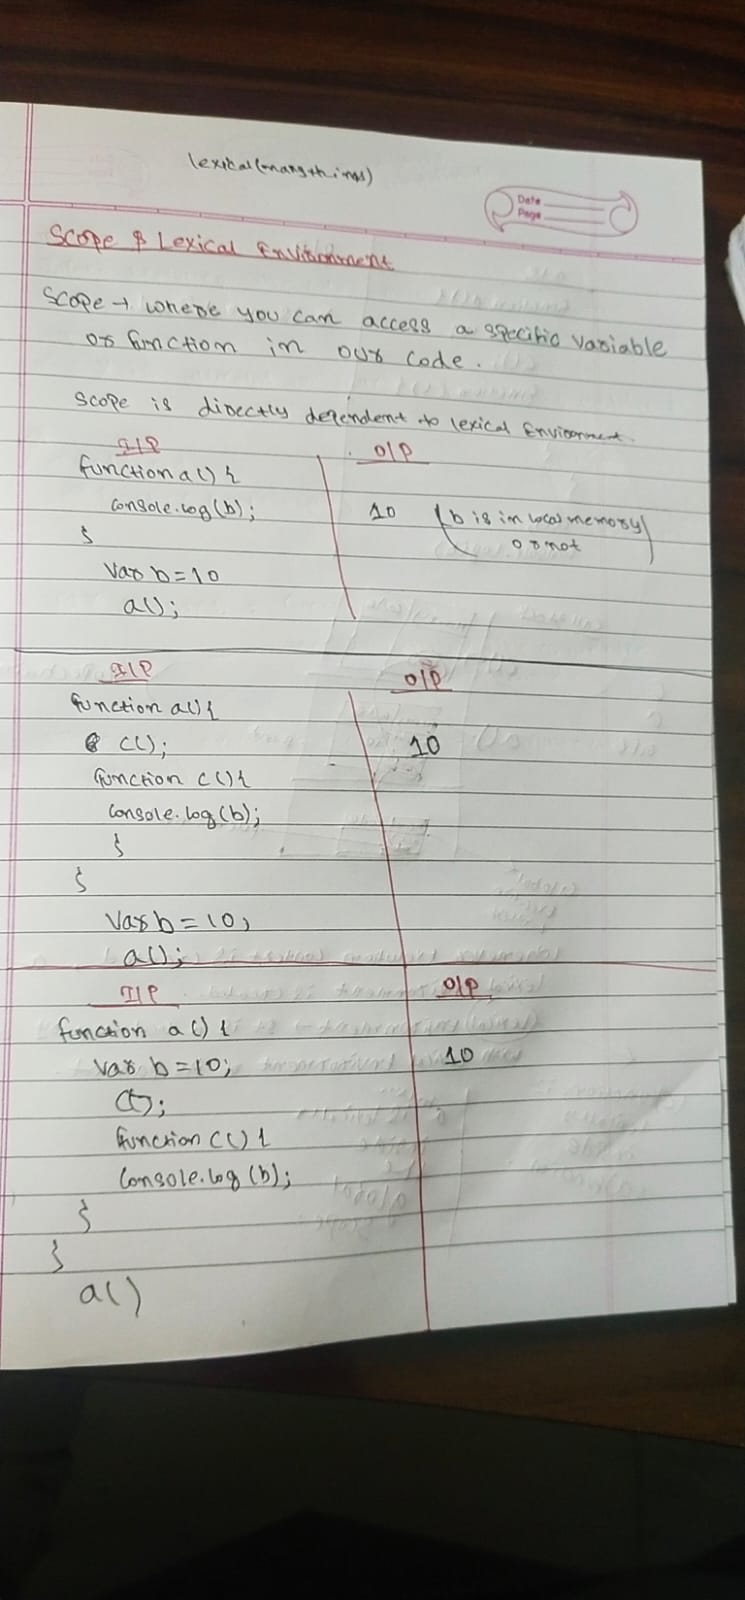 lexical(many things)
Date
Page
Scope & Lexical Environment
Scope → where you can access a specific variable
or function in our code.
Scope is directly dependent to lexical Environment.
I/P O/P
function a() {
console.log(b); 10 (b is in local memory
} or not)
var b = 10
a();
I/P O/P
function a() {
c(); 10
function c() {
console.log(b);
}
}
var b = 10;
a();
I/P O/P
function a() {
var b = 10; 10
c();
function c() {
console.log(b);
}
}
a()